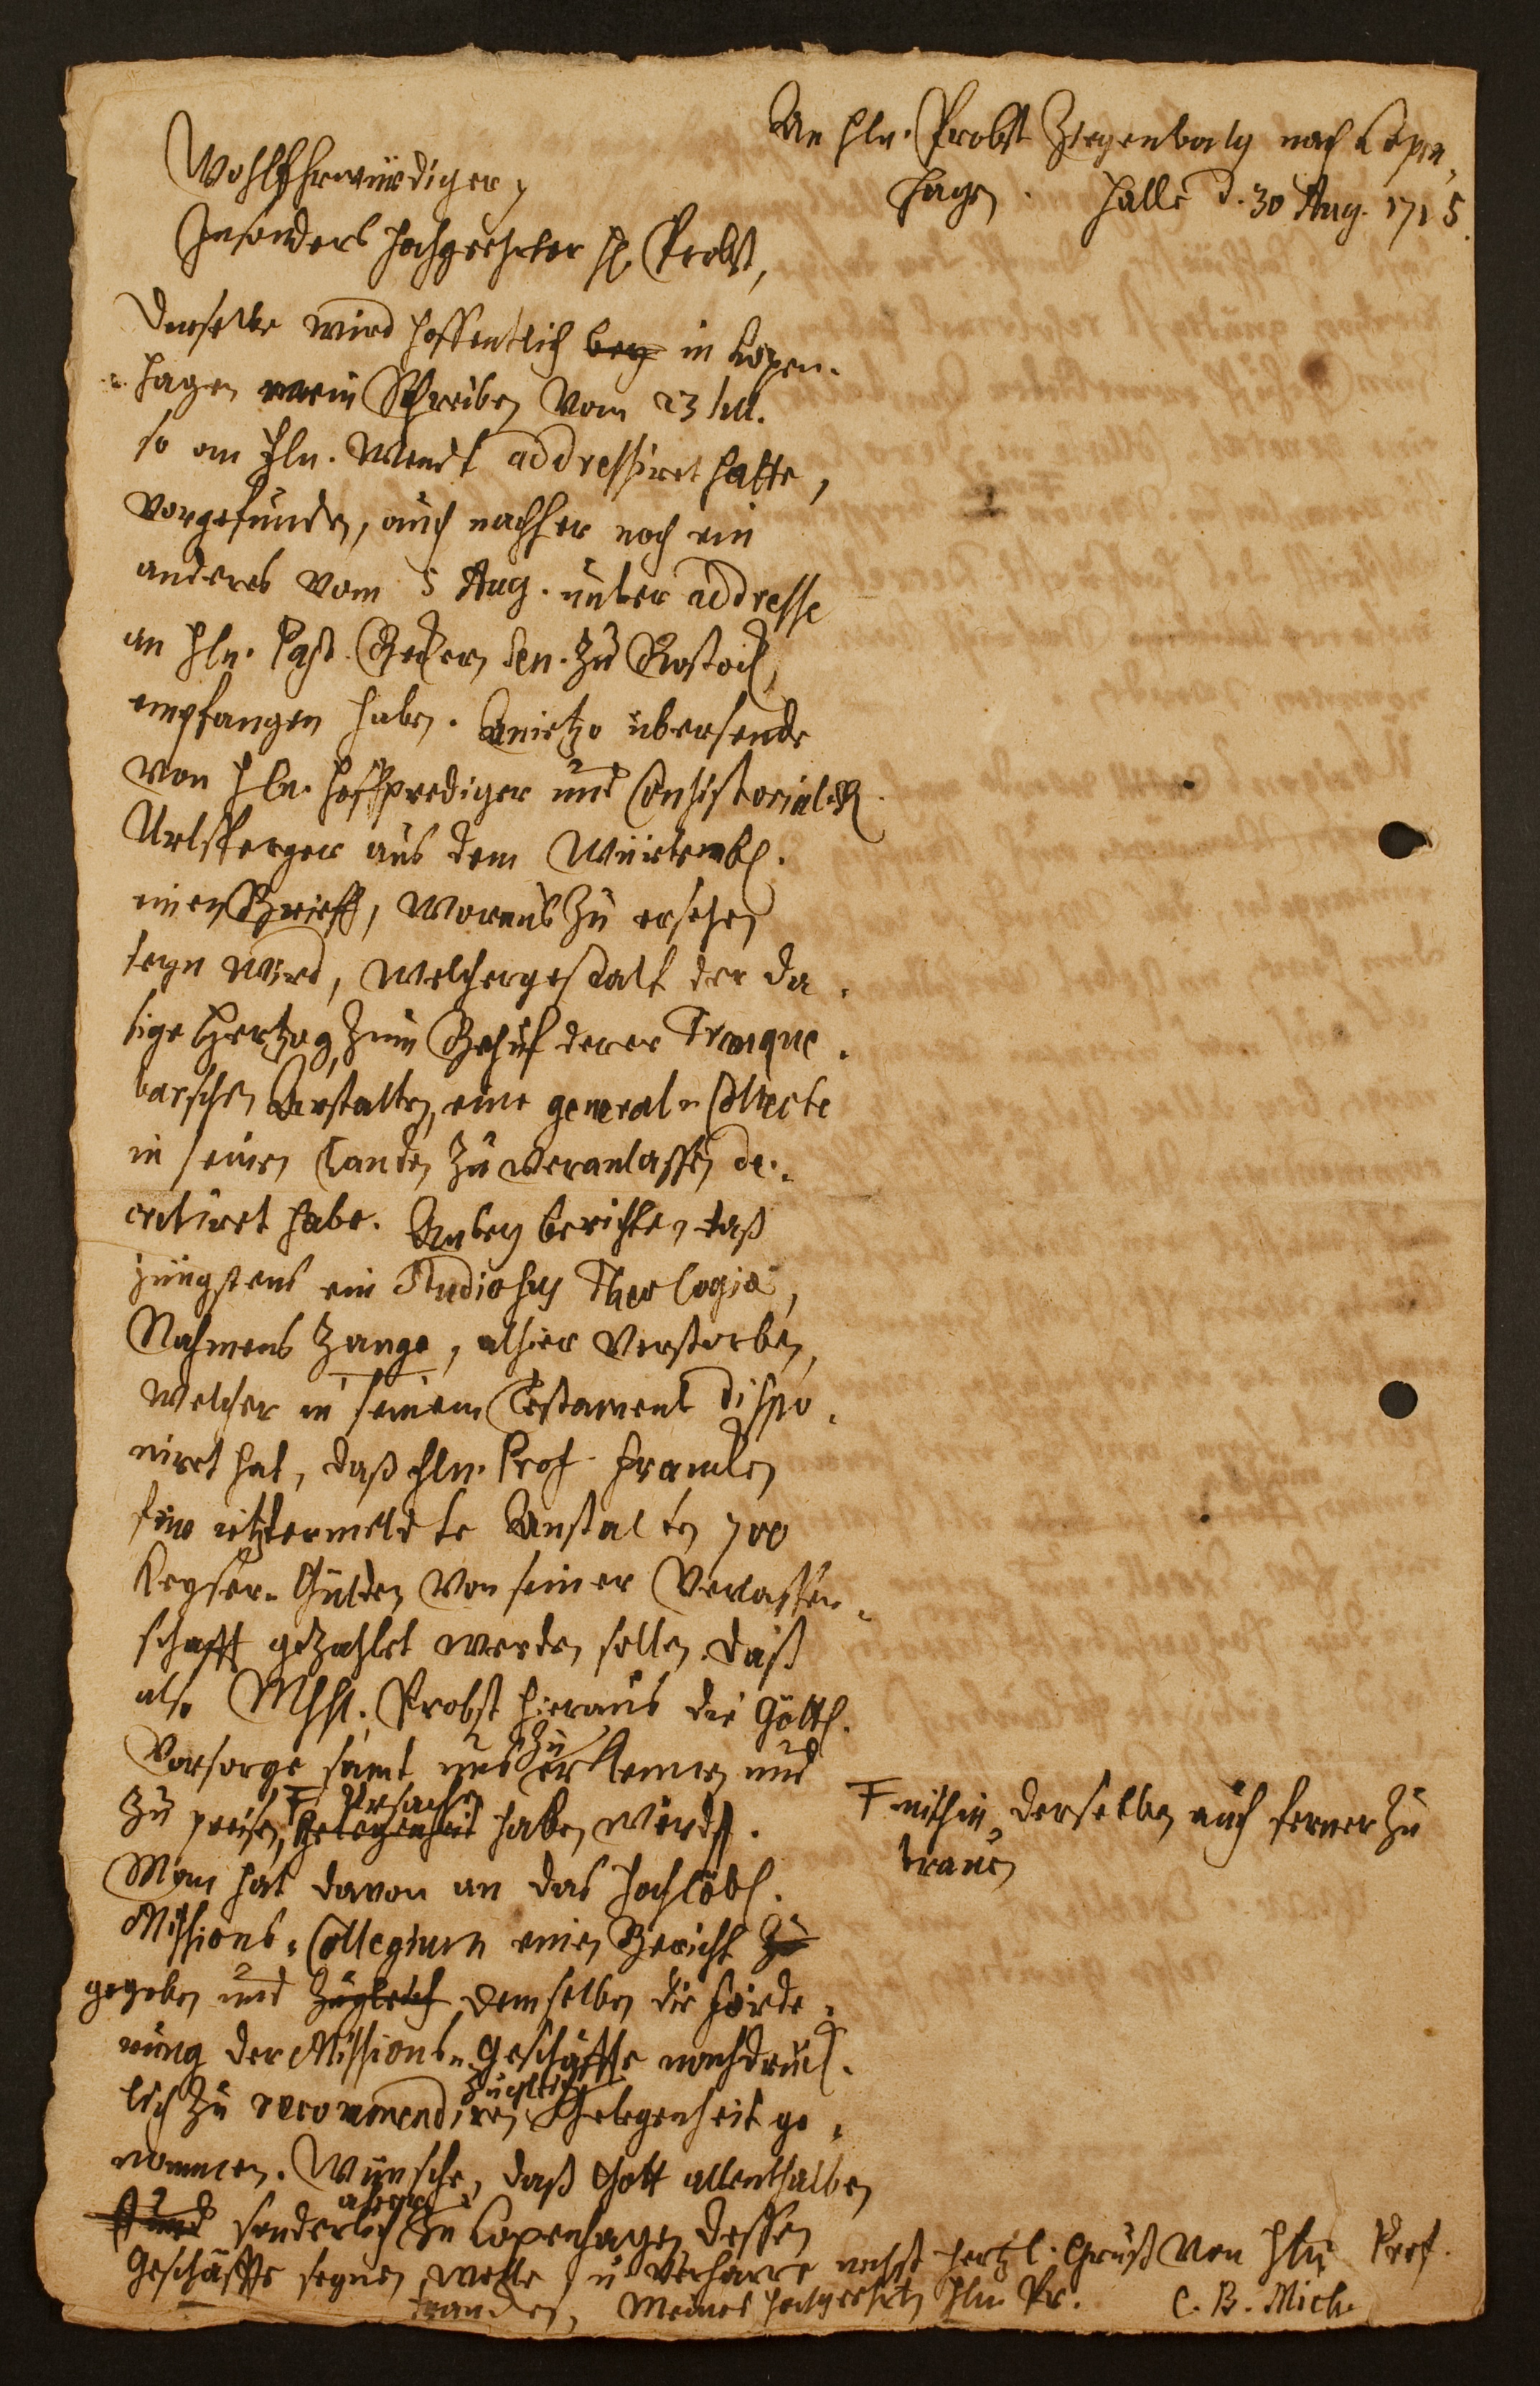 An Hln. Probst Ziegenbalg nach Copen,
hagen. Halle d. 30 Aug. 1715.
WohlEhrwürdiger,
Insonders Hochgeehrter H. Probst,
Derselbe wird hoffentlich bey in Copen-
hagen mein Schreiben vom 23 Jul.
so an Hln. Wendt addressiret hatte,
vorgefunden, auch nachher noch ein
anderes vom 5 Aug. unter addresse
an Hln. Past. Beckern Sen. zu Rostock
empfangen haben. Anietzo übersende
von Hln. Hoffprediger und ConsistorialR.
Urlsperger aus dem Würtemb.
einen Brieff, woraus zu ersehen
seyn wird, welchergestalt der da-
sige Hertzog zum Behuf derer Tranque-
barschen Anstalten, eine general-Collecte
in seinen Landen zu veranlassen de-
cretiret habe. Anbey berichte, daß
jüngstens ein Studiosus Theologiæ,
Nahmens Zange, alhier verstorben,
welcher in seinem Testament dispo-
niret hat, daß Hln. Prof. Francken
für ietztermeldte Anstalten 700
Keyser-Gulden von seiner Verlassen-
schafft gezahlet werden sollen. Daß
also MhHl. Probst hieraus die Göttl.
Vorsorge samt uns zu erkennen und
zu preisen, Ŧ Gelegenheit Ursache haben wird.
Ŧ mithin derselben auch ferner zu
trauen
Man hat davon an das Hochlöbl.
Missions-Collegium einen Bericht zu
gegeben und zugleich demselben die Förde-
rung der Missions-Geschäffte nachdrück-
lich zu recommendiren zugleich Gelegenheit ge-
nommen. Wünsche, daß Gott allenthalben
und sonderlich aber in Copenhagen dessen
Geschäffte segnen wolle, u. verharre nechst hertzl. Gruß von Hln. Prof.
Francken, Meines Hochgeehrten Hln. Pr. C. B. Mich.